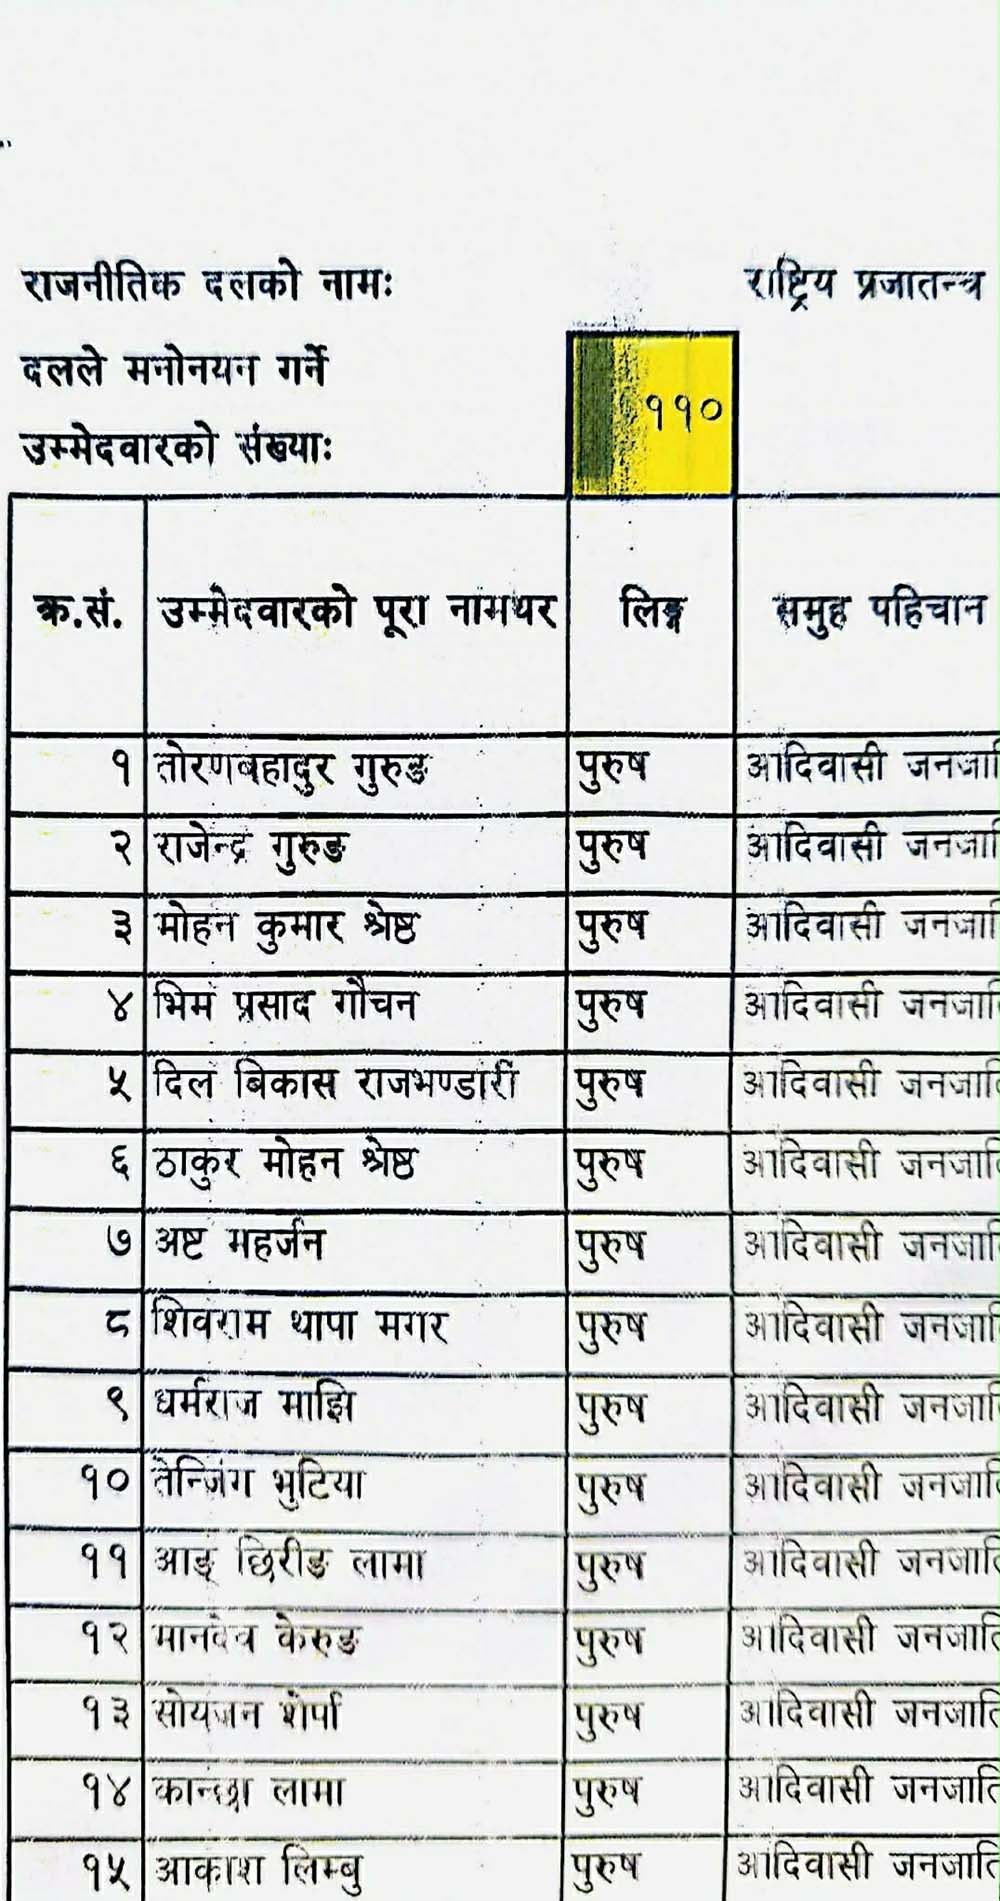 राजनीतिक दलको नामः राष्ट्रिय प्रजातन्त्र
दलले मनोनयन गर्ने
उम्मेदवारको संख्याः ११०
क्र.सं. उम्मेदवारको पूरा नामथर लिङ्ग समुह पहिचान
१ तोरणबहादुर गुरुङ पुरुष आदिवासी जनजाति
२ राजेन्द्र गुरुङ पुरुष आदिवासी जनजाति
३ मोहन कुमार श्रेष्ठ पुरुष आदिवासी जनजाति
४ भिम प्रसाद गौचन पुरुष आदिवासी जनजाति
५ दिल बिकास राजभण्डारी पुरुष आदिवासी जनजाति
६ ठाकुर मोहन श्रेष्ठ पुरुष आदिवासी जनजाति
७ अष्ट महर्जन पुरुष आदिवासी जनजाति
८ शिवराम थापा मगर पुरुष आदिवासी जनजाति
९ धर्मराज माझि पुरुष आदिवासी जनजाति
१० तेन्जिंग भुटिया पुरुष आदिवासी जनजाति
११ आङ् छिरीङ लामा पुरुष आदिवासी जनजाति
१२ केरुङ पुरुष आदिवासी जनजाति
१३ शेर्पा पुरुष आदिवासी जनजाति
१४ कान्छा लामा पुरुष आदिवासी जनजाति
१५ आकाश लिम्बु पुरुष आदिवासी जनजाति